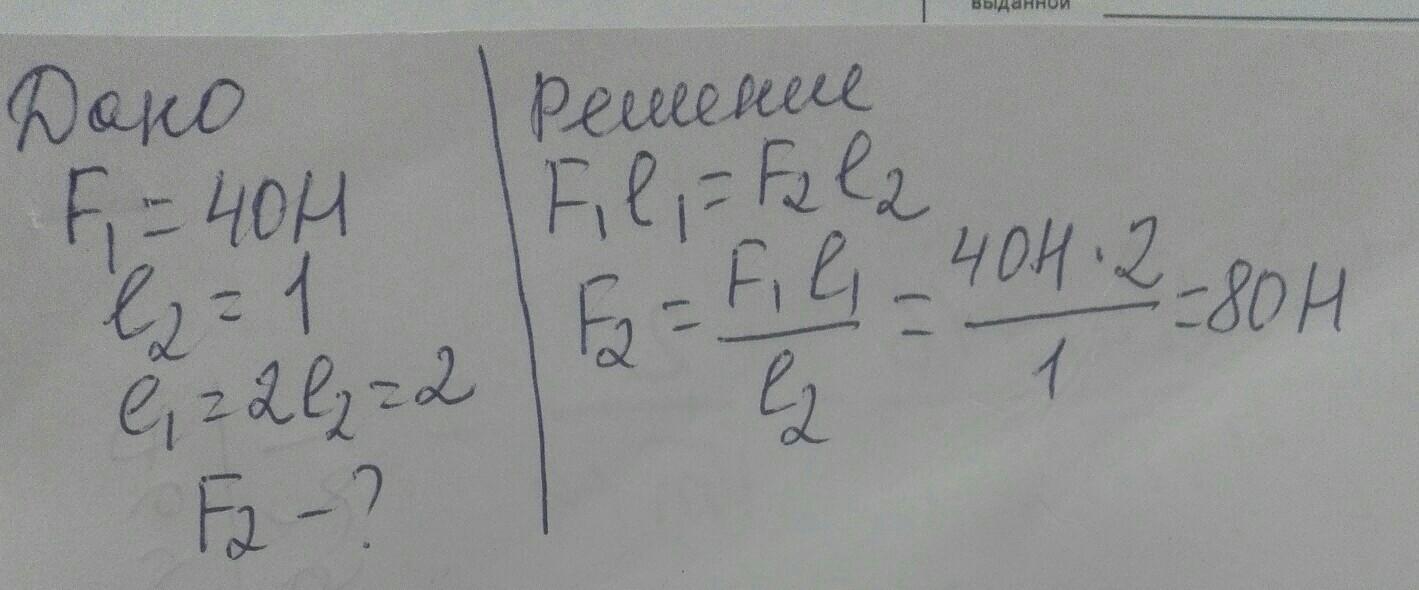 выданной
Дано
F₁ = 40Н
ℓ₂ = 1
ℓ₁ = 2ℓ₂ = 2
F₂ - ?
Решение
F₁ℓ₁ = F₂ℓ₂
F₂ = F₁ℓ₁ / ℓ₂ = 40Н · 2 / 1 = 80Н